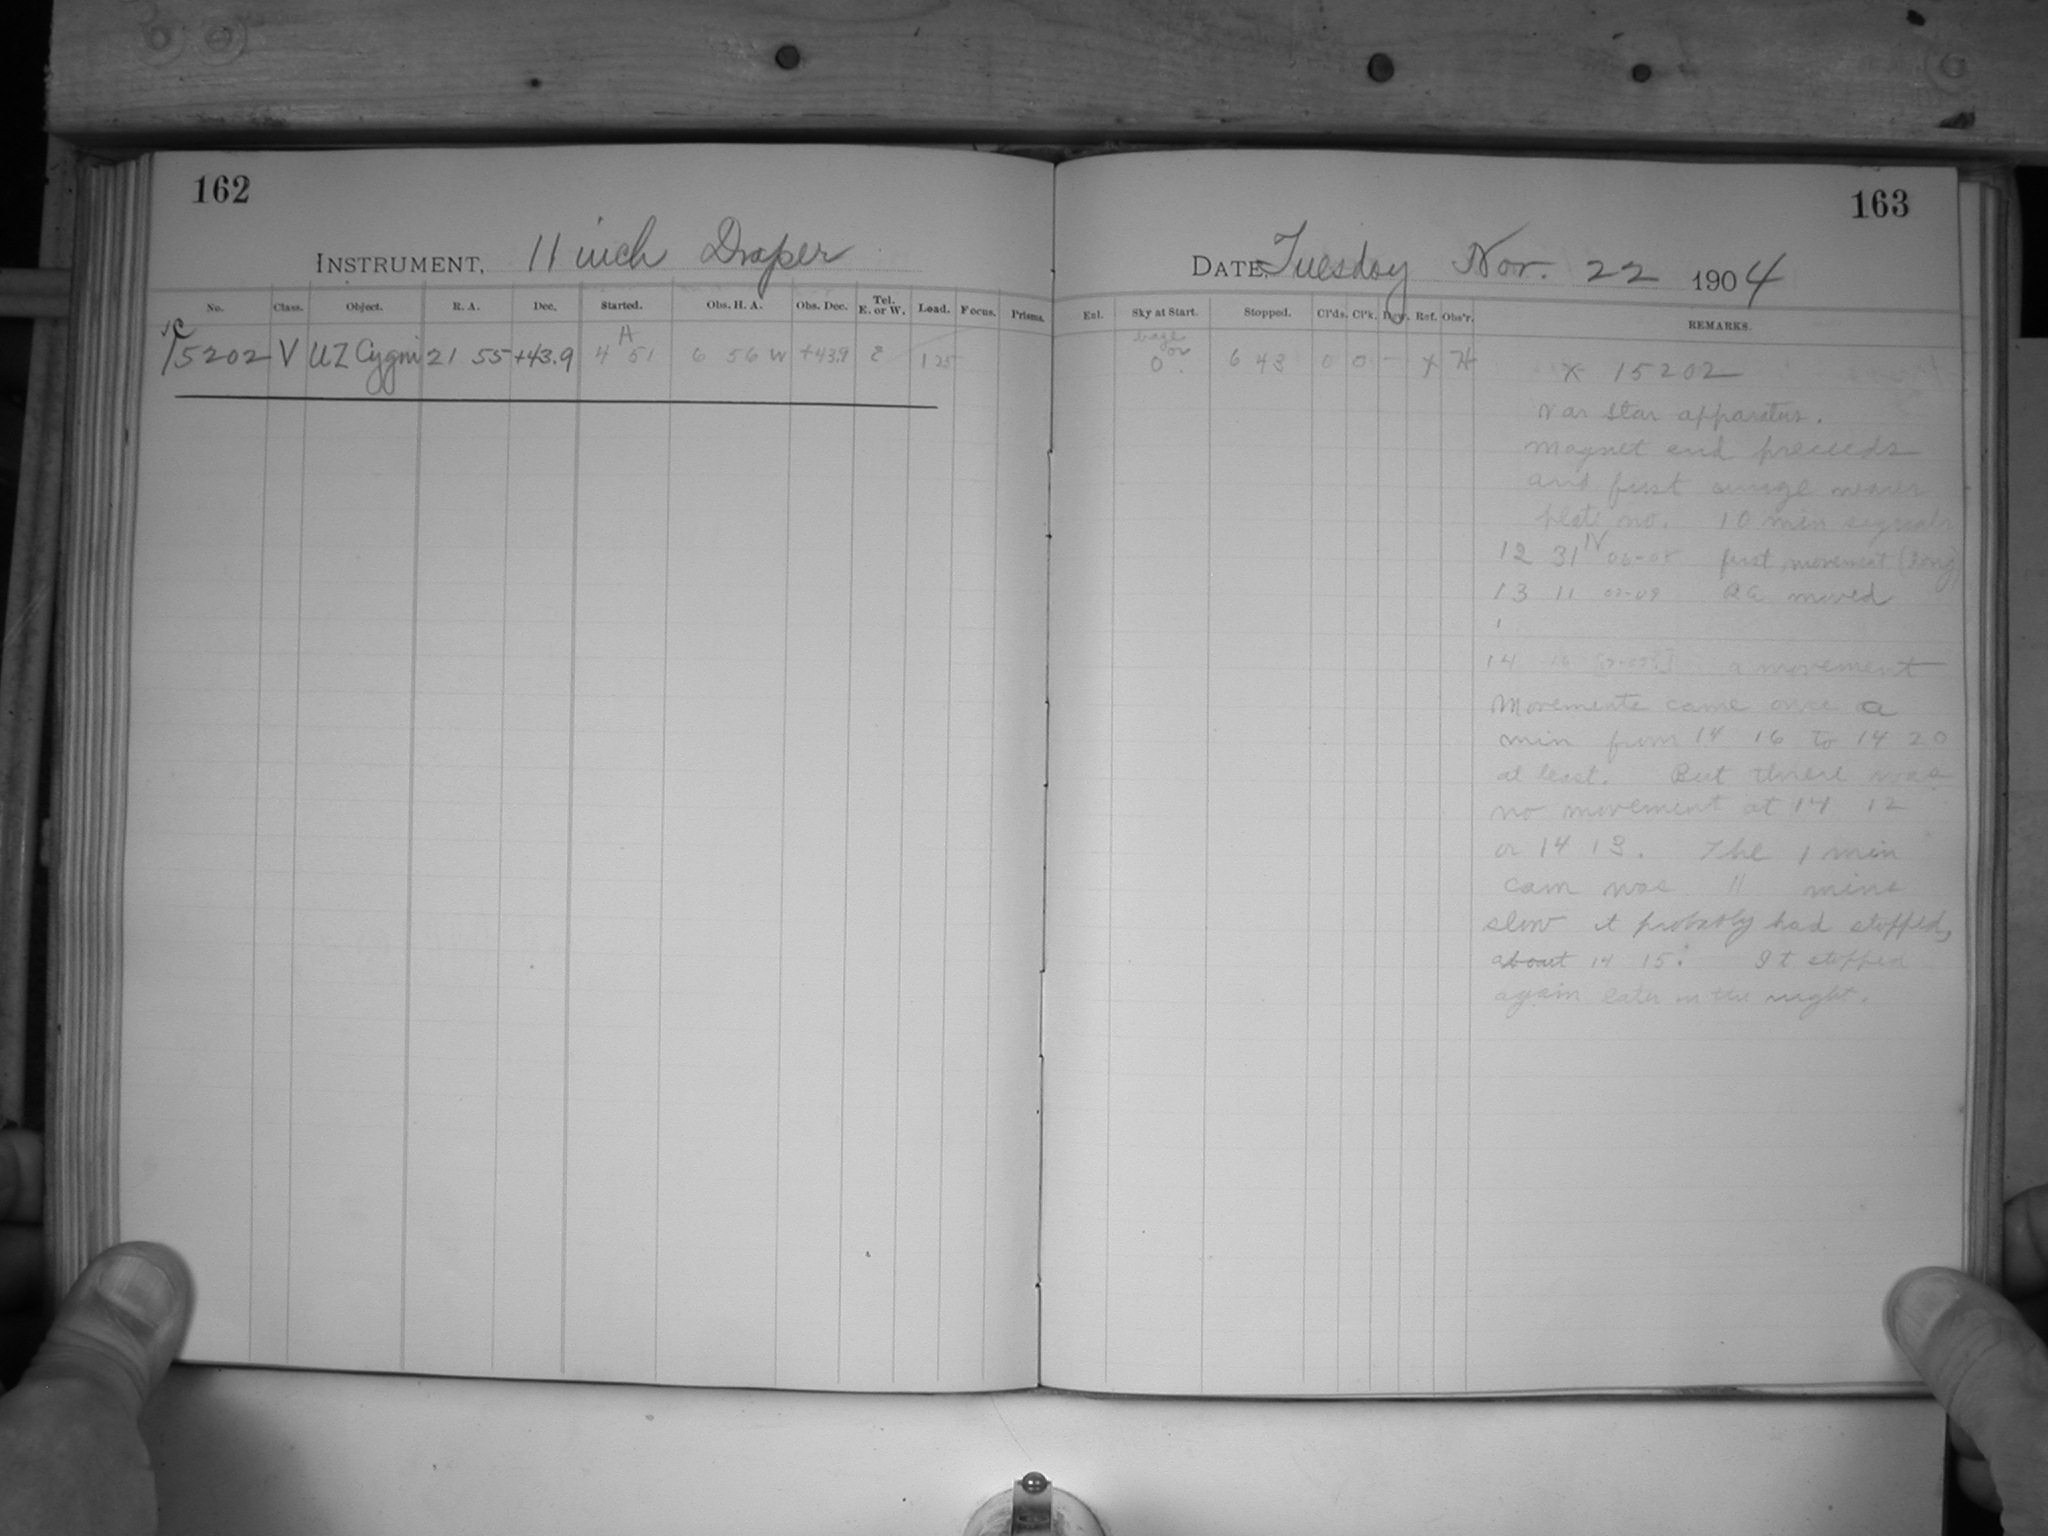 162
INSTRUMENT, 11 inch Draper
No. Class. Object. R. A. Dec. Started. Obs. H. A. Obs. Dec. Tel. E. or W. Load. Focus. Prisms.
15202 V UZ Cygni 21 55 +43.9 4 51 6 56 W +43.9 E 1 25
163
DATE, Tuesday Nov. 22 1904
Enl. Sky at Start. Stopped. Cl'ds. Cl'k. Dew. Ref. Obs'r. REMARKS.
0 6 43 0 0 – X H X 15202
Var Star apparatus.
Magnet end preceeds
and first image nearer
plate no. 10 min signals
12 31 06-08 first movement (long)
13 11 07-09 RA moved
14 16 a movement
Movements came once a
min from 14 16 to 14 20
at least. But there was
no movement at 14 12
or 14 13. The 1 min
cam was 11 mins
slow it probably had stopped,
about 14 15. It stopped
again later in the night.